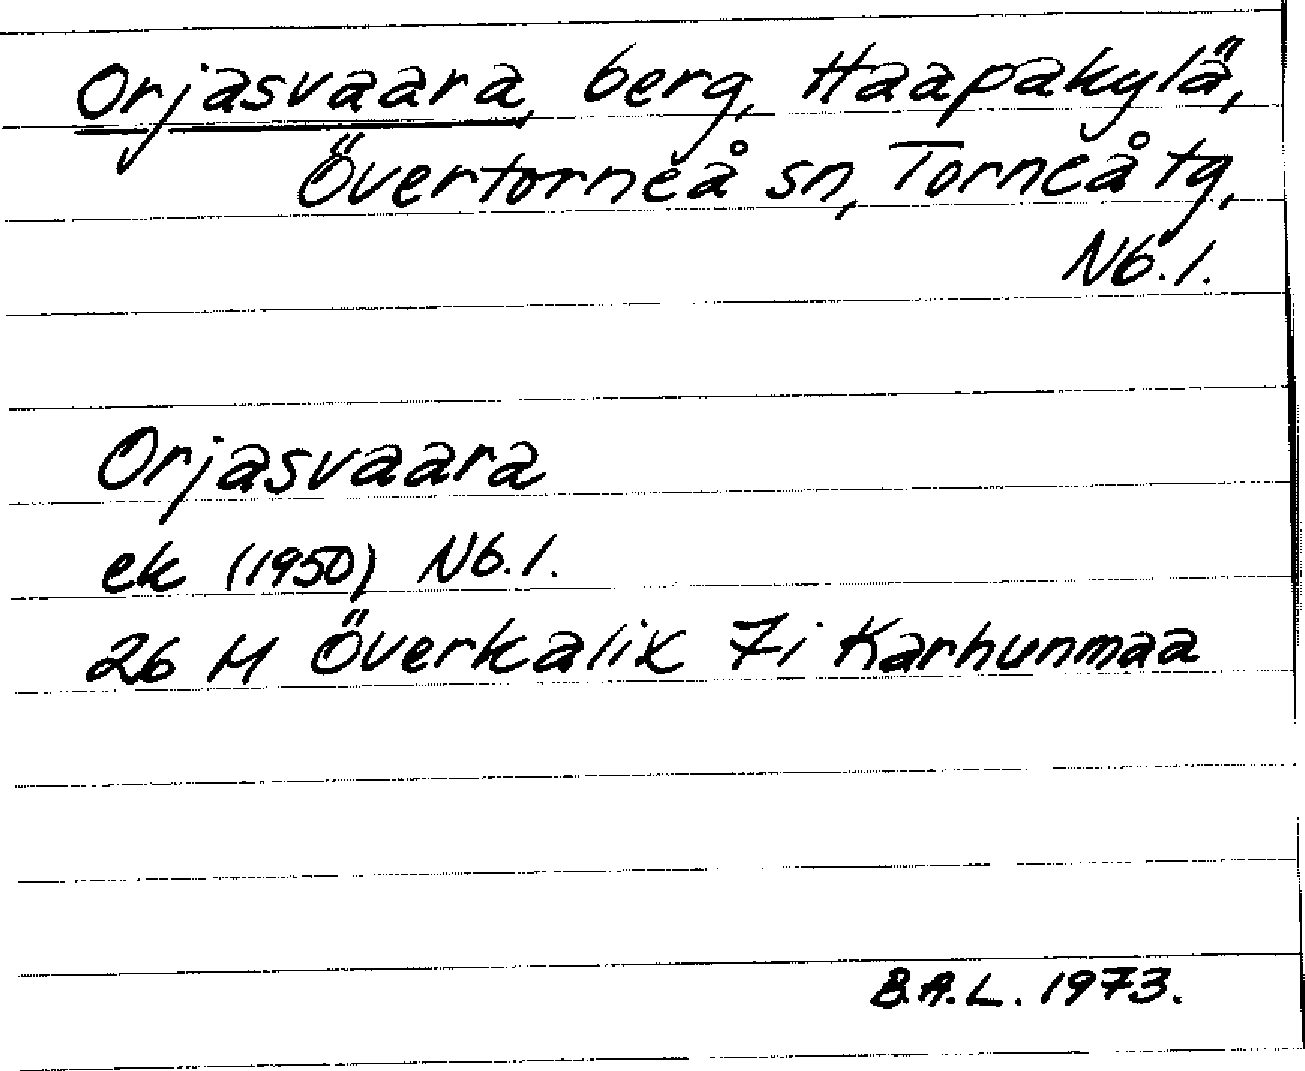 Orjasvaara, berg, Haapakylä,
Övertorneå sn, Torneå tg,
Nb. l.
Orjasvaara
ek (1950) Nb. l.
26 M Överkalix 7i Karhunmaa
B.A.L. 1973.